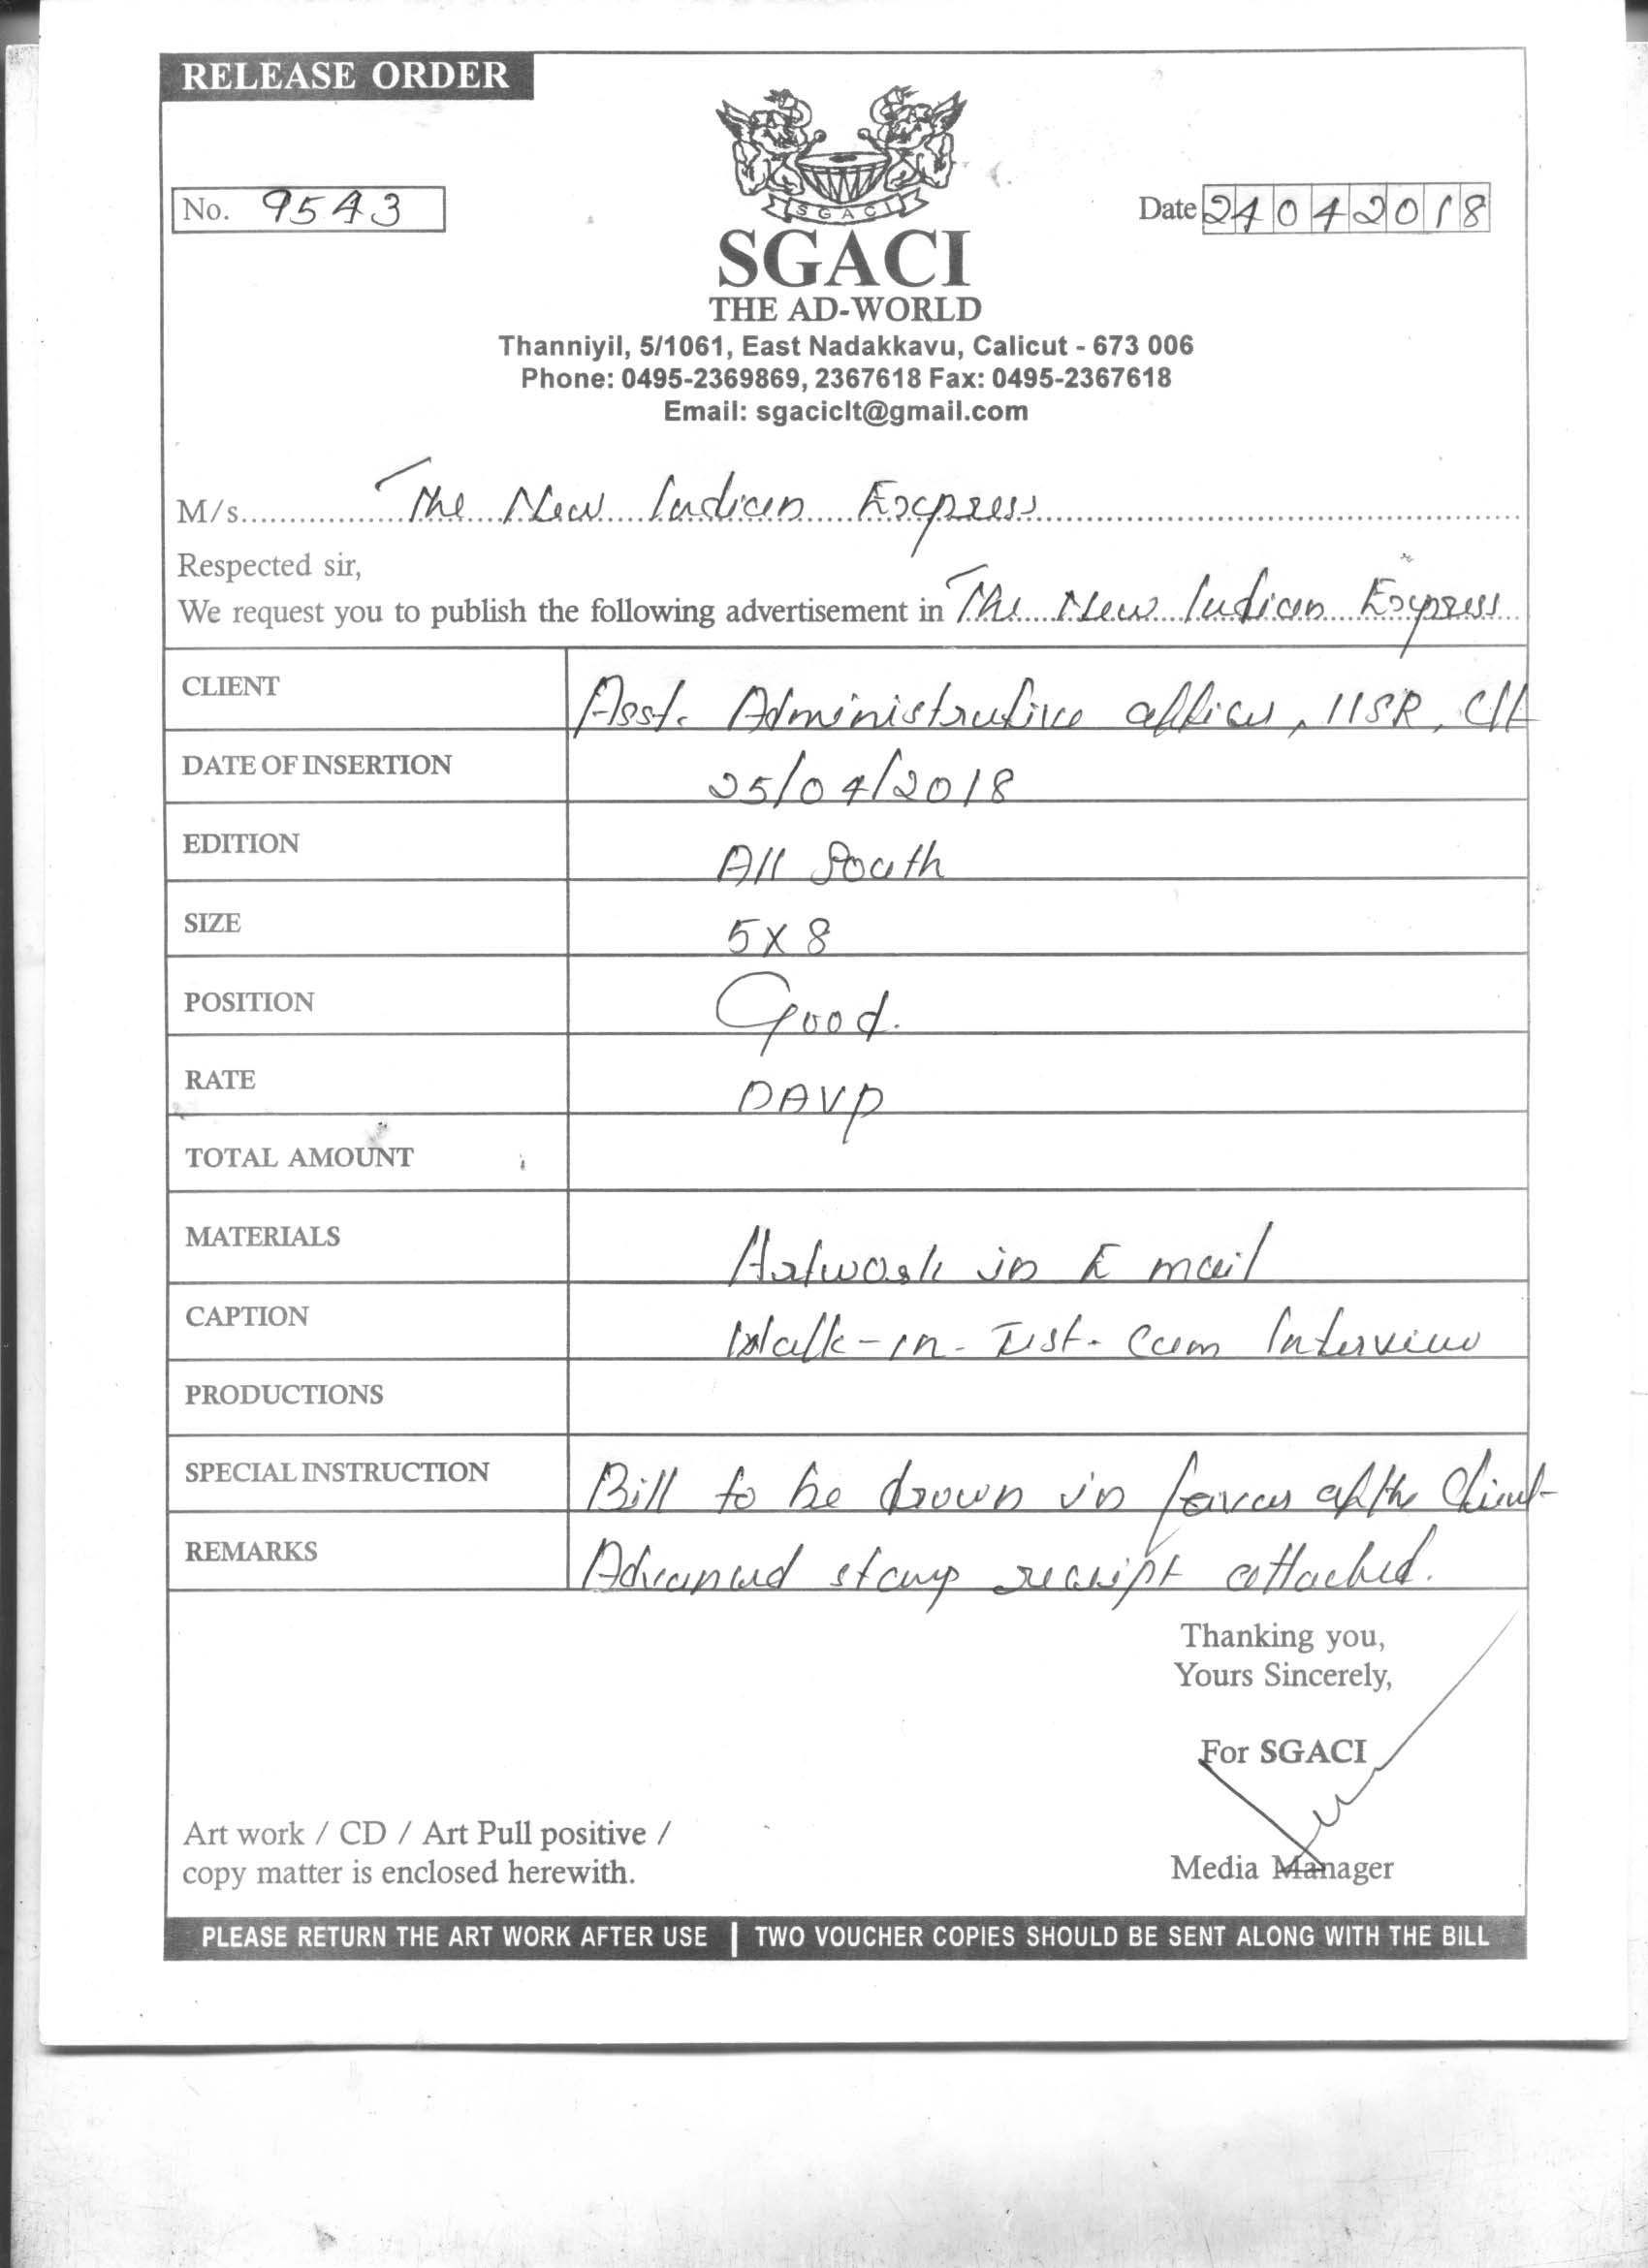 RELEASE ORDER
No. 9543
Date 24042018
SGACI
SGACI
THE AD-WORLD
Thanniyil, 5/1061, East Nadakkavu, Calicut - 673 006
Phone: 0495-2369869, 2367618 Fax: 0495-2367618
Email: sgaciclt@gmail.com
M/s. The New Indian Express
Respected sir,
We request you to publish the following advertisement in The New Indian Express
CLIENT Asst. Administrative officer, IISR, Clt
DATE OF INSERTION 25/04/2018
EDITION All South
SIZE 5x8
POSITION Good.
RATE DAVP
TOTAL AMOUNT
MATERIALS Artwork in E mail
CAPTION Walk-in-Test-Cum Interview
PRODUCTIONS
SPECIAL INSTRUCTION Bill to be drown in favour of the Client
REMARKS Advanced stamp receipt attached.
Thanking you,
Yours Sincerely,
For SGACI
Art work / CD / Art Pull positive /
copy matter is enclosed herewith.
Media Manager
PLEASE RETURN THE ART WORK AFTER USE | TWO VOUCHER COPIES SHOULD BE SENT ALONG WITH THE BILL